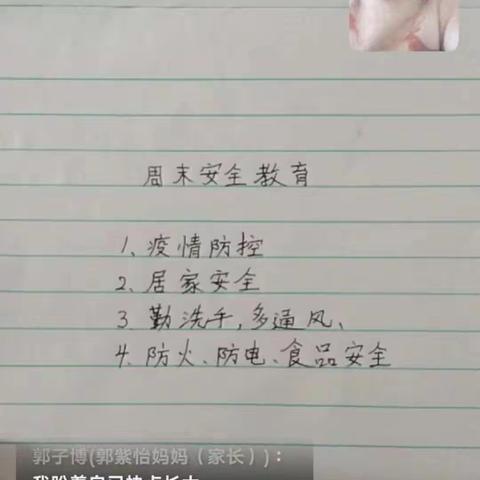 周末安全教育
1、疫情防控
2、居家安全
3 勤洗手,多通风、
4. 防火、防电、食品安全
郭子博(郭紫怡妈妈（家长）)：
我盼着自己快点长大